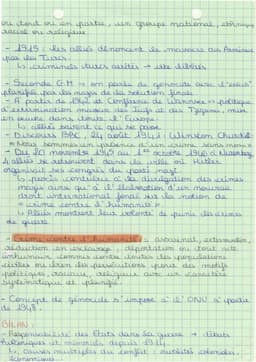 ou tout ou en partie, un groupe national, ethnique
racial ou religieux
- 1915 : les alliés dénoncent le massacre des Arméniens
par les Turcs.
↳ criminels turcs arrêtés → vite libérés
- Seconde G.M → on parle de génocide avec l'extermination
planifiée par les nazis de la solution finale
- A partir de 1942 et Conférence de Wannsee → politique
d'extermination massive des Juifs et des Tziganes, mise
en œuvre dans toute l'Europe.
↳ alliés savent ce qui se passe
- Discours BBC, 24 août 1941 (Winston Churchill
« Nous sommes en présence d'un crime sans nom »
- Du 20 novembre 1945 au 1er octobre 1946 à Nuremberg,
4 alliés se retrouvent dans la ville où Hitler
organisait les congrès du parti nazi.
↳ procès contribue à la divulgation des crimes
nazis ainsi qu'à l'élaboration d'un nouveau
droit international fondé sur la notion de
« crime contre l'humanité »
↳ Alliés montrent leur volonté de punir les crimes
de guerre
- Crime contre l'humanité : assassinat, extermination,
réduction en esclavage, déportation ou tout acte
inhumain commis contre toutes les populations
civiles ou bien les persécutions pour des motifs
politiques, raciaux, religieux avec un caractère
systématique et planifié.
- Concept de génocide s'impose à l'ONU à partir
de 1948.
BILAN :
- Responsabilité des Etats dans la guerre → débats
historiques et mémoriels depuis 1914.
↳ causes multiples du conflit : rivalités coloniales,
économiques